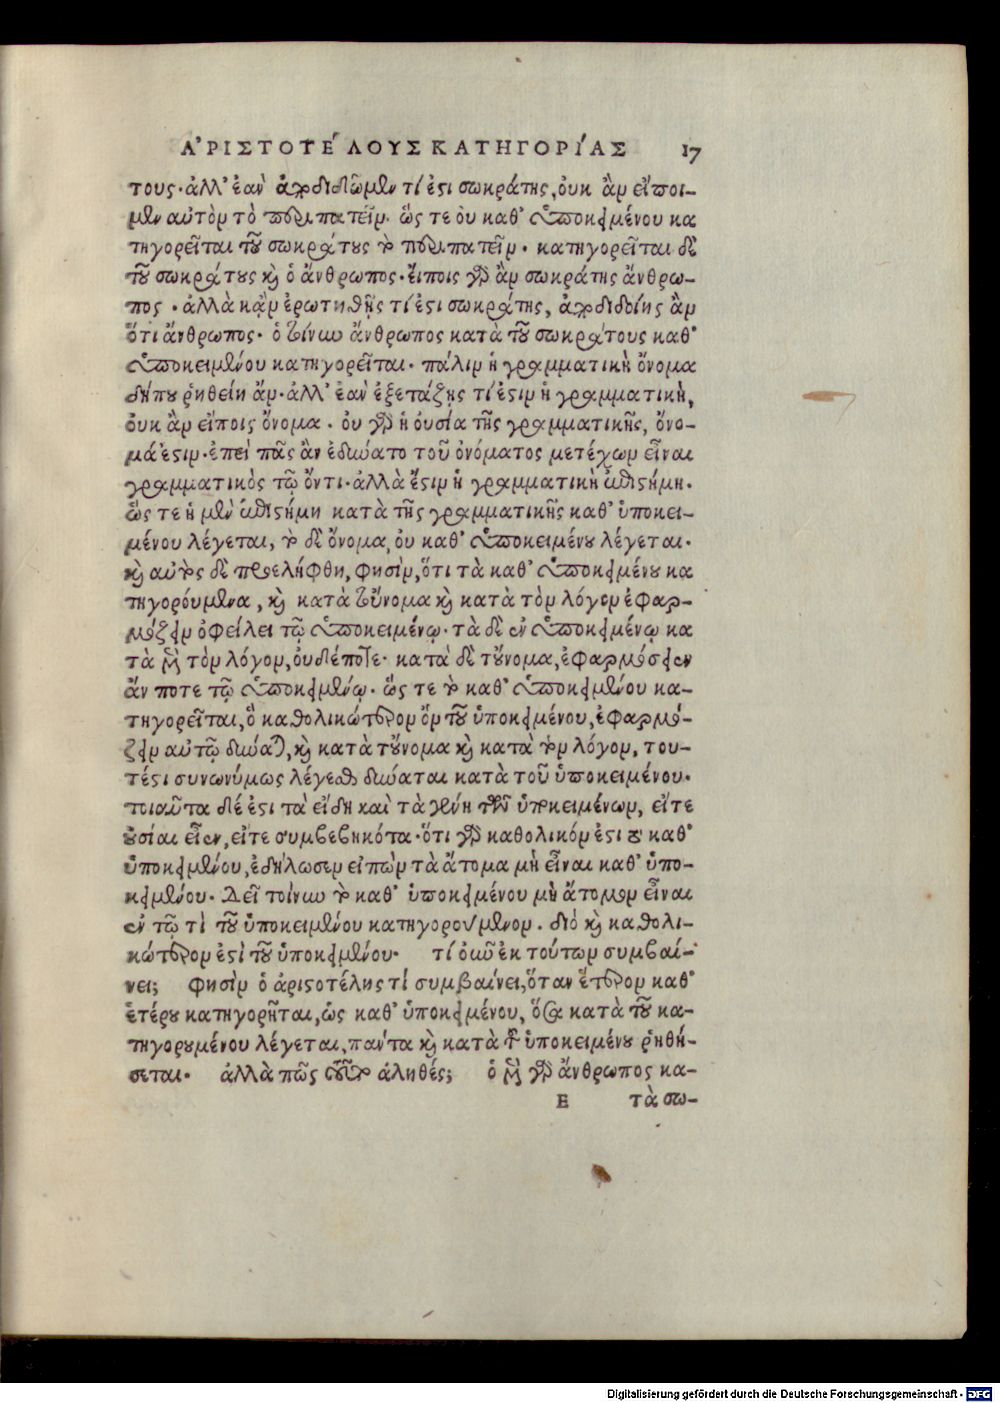 Α᾿ΡΙΣΤΟΤΕ´ΛΟΥΣ ΚΑΤΗΓΟΡΙ´ΑΣ 17
τους· ἀλλ' ἐὰν ἀποδιδῶμεν τί ἐστι σωκράτης, ὀυκ ἂν εἴποι-
μεν αυτὸν τὸ περιπατεῖν. ὥς τε ὀυ καθ' ὑποκειμένου κα
τηγορεῖται τοῦ σωκράτους τὸ περιπατεῖν. κατηγορεῖται δὲ
τοῦ σωκράτους καὶ ὁ ἄνθρωπος· ἔιποις γὰρ ἂν σωκράτης ἄνθρω-
πος · ἀλλὰ κἂν ἐρωτηθῇς τί ἐστι σωκράτης, ἀποδιδοίης ἂν
ὅτι ἄνθρωπος· ὁ τοίνυν ἄνθρωπος κατὰ τοῦ σωκράτους καθ'
ὑποκειμένου κατηγορεῖται· πάλιν ἡ γραμματικὴ ὄνομα
δήπου ῥηθείη ἄν· ἀλλ' ἐὰν ἐξετάζης τί ἐστιν ἡ γραμματικὴ,
ὀυκ ἂν εἴποις ὄνομα · ὀυ γὰρ ἡ ὀυσία τῆς γραμματικῆς, ὄνο-
μά ἐστιν· ἐπεὶ πᾶς ἂν ἐδύνατο τοῦ ὀνόματος μετέχων εἶναι
γραμματικὸς τῷ ὄντι· ἀλλὰ ἔστιν ἡ γραμματικὴ ἐπιστήμη·
ὥς τε ἡ μὲν ἐπιστήμη κατὰ τῆς γραμματικῆς καθ' ὑποκει-
μένου λέγεται, τὸ δὲ ὄνομα, ὀυ καθ' ὑποκειμένου λέγεται·
καὶ αὐτὸς δὲ προελήφθη, φησὶν, ὅτι τὰ καθ' ὑποκειμένου κα
τηγορόυμενα, καὶ κατὰ τοὔνομα καὶ κατὰ τὸν λόγον ἐφαρ-
μόζειν ὀφείλει τῷ ὑποκειμένῳ· τὰ δὲ ἐν ὑποκειμένῳ κα
τὰ μὲν τὸν λόγον, ὀυδέποτε· κατὰ δὲ τοὔνομα, ἐφαρμόσειεν
ἄν ποτε τῷ ὑποκειμένῳ· ὥς τε τὸ καθ' ὑποκειμένου κα-
τηγορεῖται, ὃ καθολικώτερον ὂν τοῦ ὑποκειμένου, ἐφαρμό-
ζειν αυτῷ δύναται, καὶ κατὰ τοὔνομα καὶ κατὰ τὸν λόγον, του-
τέστι συνωνύμως λέγεσθαι δύναται κατὰ τοῦ ὑποκειμένου·
τοιαῦτα δέ ἐστι τὰ εἴδη καὶ τὰ γένη τῶν ὑποκειμένων, εἴτε
ὀυσίαι εἶεν, εἴτε συμβεβηκότα· ὅτι γὰρ καθολικόν ἐστι τὸ καθ'
ὑποκειμένου, ἐδήλωσεν εἰπὼν τὰ ἄτομα μὴ εἶναι καθ' ὑπο-
κειμένου· Δεῖ τοίνυν τὸ καθ' ὑποκειμένου μὴ ἄτομον εἶναι
ἐν τῷ τὶ τοῦ ὑποκειμένου κατηγορούμενον. διὸ καὶ καθολι-
κώτερον ἐστὶ τοῦ ὑποκειμένου· τί ὀυν ἐκ τούτων συμβαί-
νει; φησὶν ὁ ἀριστοτέλης τί συμβαίνει, ὅταν ἕτερον καθ'
ἑτέρου κατηγορῆται, ὡς καθ' ὑποκειμένου, ὅσα κατὰ τοῦ κα-
τηγορουμένου λέγεται, πάντα καὶ κατὰ τοῦ ὑποκειμένου ῥηθή-
σεται· ἀλλὰ πῶς τοῦτο ἀληθές; ὁ μὲν γὰρ ἄνθρωπος κα-
E τὰ σω-
Digitalisierung gefördert durch die Deutsche Forschungsgemeinschaft · DFG